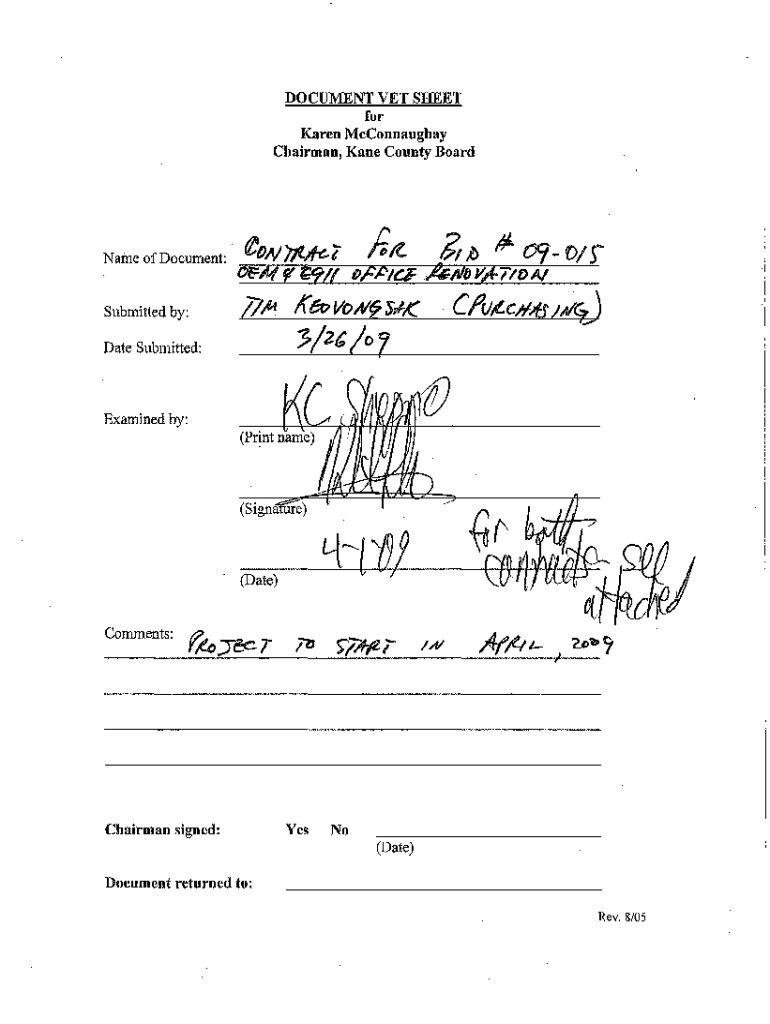 DOCUMENT VET SHEET
for
Karen McConnaughay
Chairman, Kane County Board
Name of Document: CONTRACT FOR BID # 09-015
OEM & E911 OFFICE RENOVATION
Submitted by: TIM KEOVONGSAK (PURCHASING)
Date Submitted: 3/26/09
Examined by: KC Shepro
(Print name)
(Signature)
for both
4-1-09 contracts
attached
(Date)
Comments: PROJECT TO START IN APRIL, 2009
Chairman signed: Yes No
(Date)
Document returned to:
Rev. 8/05